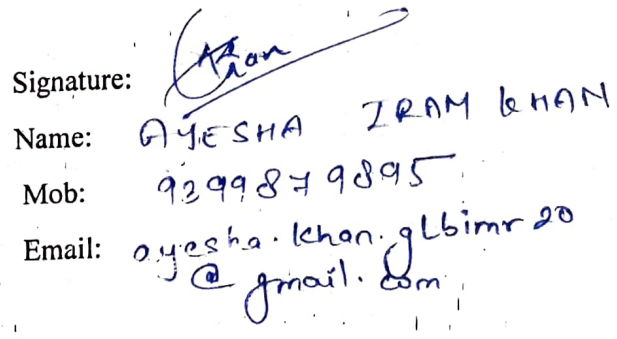 Signature: Khan
Name: AYESHA IRAM KHAN
Mob: 9299879895
Email: ayesha.khan.glbimr20
@gmail.com